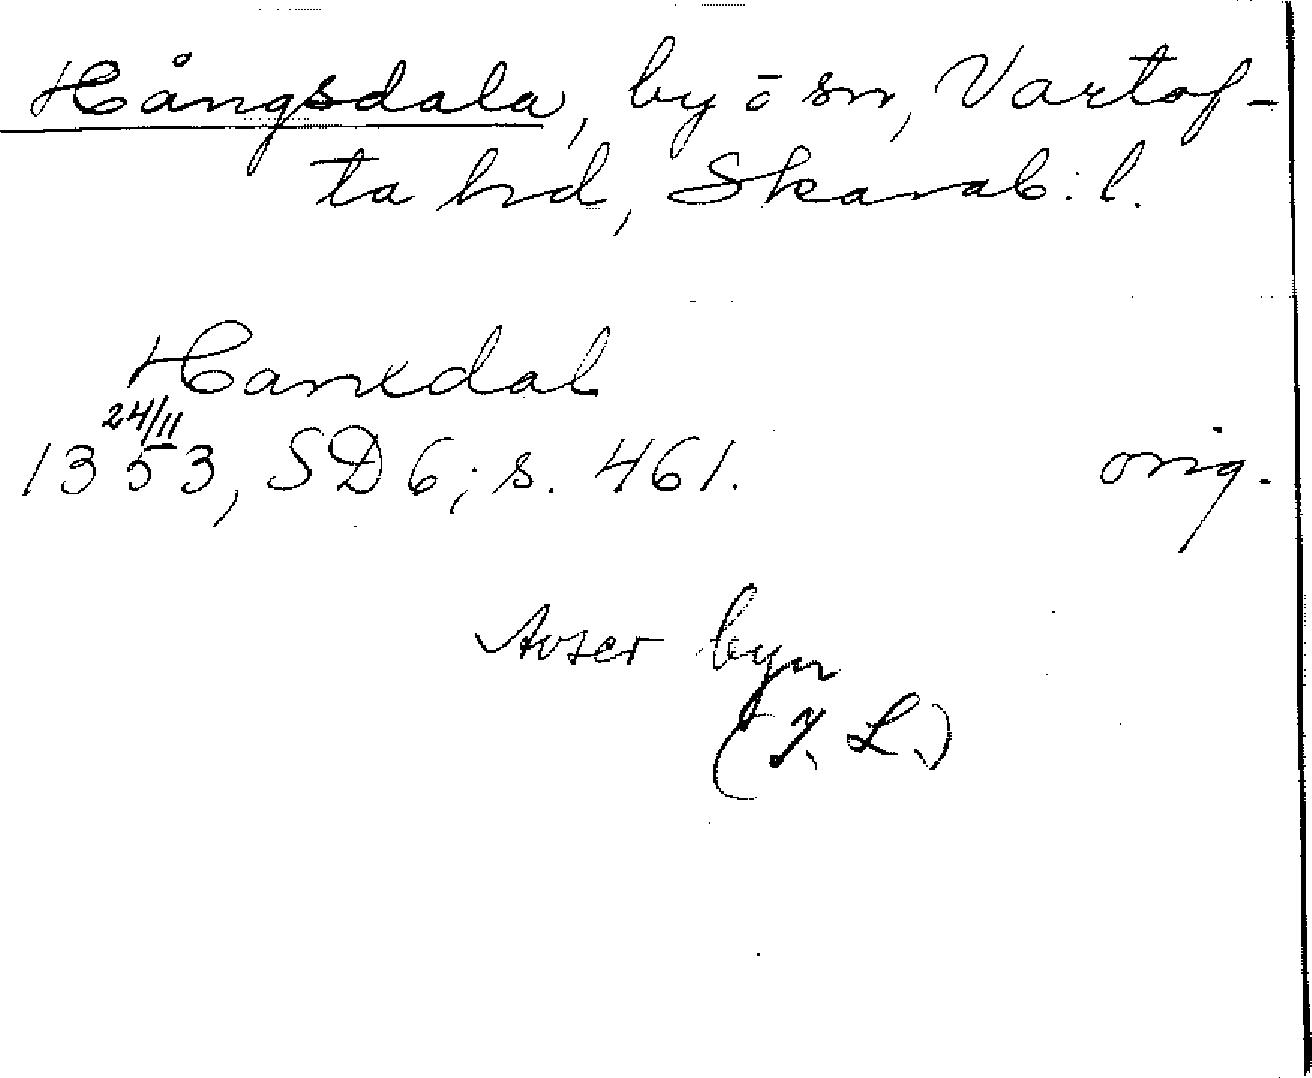 Hångsdala, by o sn, Vartof-
ta hd, Skarab. l.
Hanxdal
24/11
1353, SD 6; s. 461. orig.
Avser byn
(I. L.)